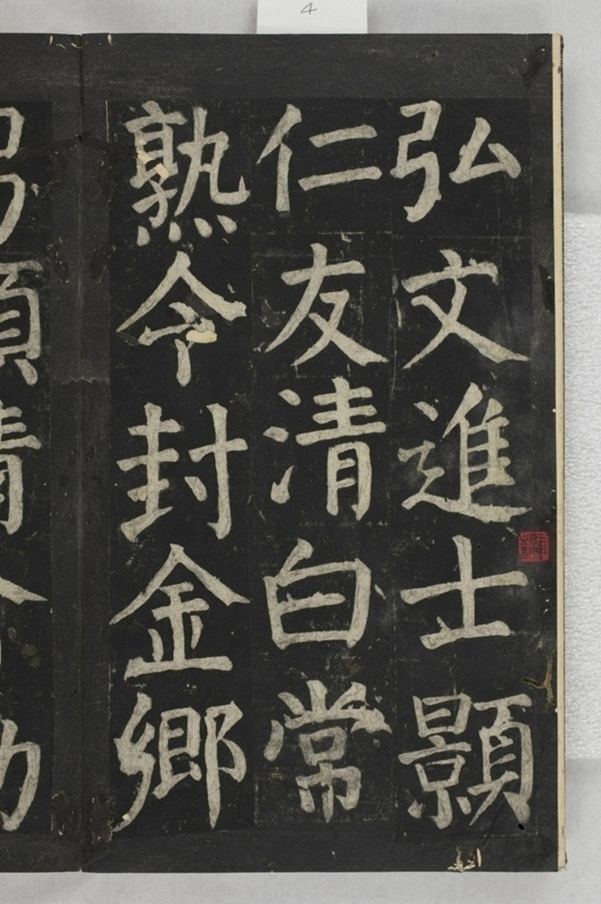 4
弘文進士顥
仁友清白常
熟令封金鄉